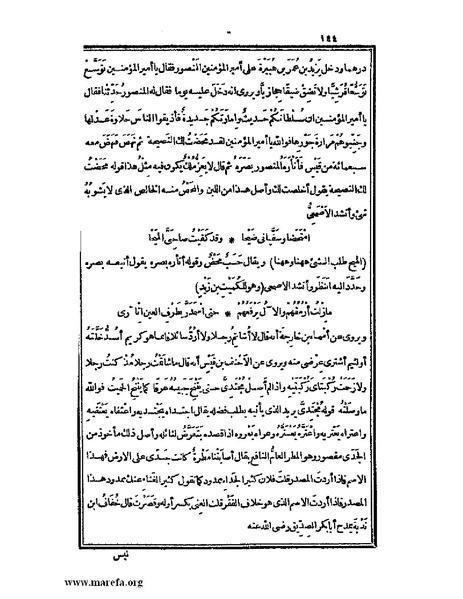 ١٤٤
درهما ودخل يزيد بن عمر بن هبيرة على أمير المؤمنين المنصور فقال يا أمير المؤمنين توسع
توسعا قرشيا ولا تضق ضيقا حجازيا ويروى انه دخل عليه يوما فقال له المنصور حدثنا فقال
يا أمير المؤمنين ان سلطانكم حديث وامارتكم جديدة فأذيقوا الناس حلاوة عدلها
وجنبوهم مرارة جورها فوالله يا أمير المؤمنين لقد محضت لك النصيحة ثم نهض فنهض معه
سبعمائة من قيس فأتأره المنصور بصره ثم قال لا يعز ملك يكون فيه مثل هذا قوله محضت
لك النصيحة يقول أخلصت لك وأصل هذا من اللبن والمحض منه الخالص الذى لا يشوبه
شئ وأنشد الأصمعى
امتحضا وسقيانى ضيحا * وقد كفيت صاحبى الميحا
(الميح طلب الشئ ههنا وههنا) ويقال حسب محض وقوله أتأره بصره يقول أتبعه بصره
وحدد اليه النظر وأنشد الاصمعى (وهو للكميت بن زيد)
مازلت أرمقهم والآل يرفعهم * حتى اسمدر بطرف العين إتارى
ويروى عن أسماء بن خارجة أنه قال لا أشاتم رجلا ولا أرد سائلا فانما هو كريم أسد خلته
أو لئيم أشترى عرضى منه ويروى عن الاحنف بن قيس أنه قال ما شاتمت رجلا مذ كنت رجلا
ولا زحمت ركبتاى ركبتيه واذا لم أصل مجتدى حتى ينتح جبينه عرقا كما ينتح الحميت فوالله
ما وصلته قوله مجتدى يريد الذى يأتيه يطلب فضله يقال اجتداه يجتديه واعتفاه يعتفيه
واعتراه يعتريه واعتره يعتره وعراه يعروه اذا قصده يتعرض لنائله وأصل ذلك مأخوذ من
الجدى مقصور وهو المطر العام النافع يقال أصابتنا مطرة كانت جدى على الارض فهذا
الاسم فاذا أردت المصدر قلت فلان كثير الجداء ممدود كما تقول كثير الغناء عنك ممدود هذا
المصدر فاذا أردت الاسم الذى هو خلاف الفقر قلت الغنى بكسر أوله وقصرت قال خفاف ابن
ندبة يمدح أبا بكر الصديق رضى الله عنه
ليس
www.marefa.org